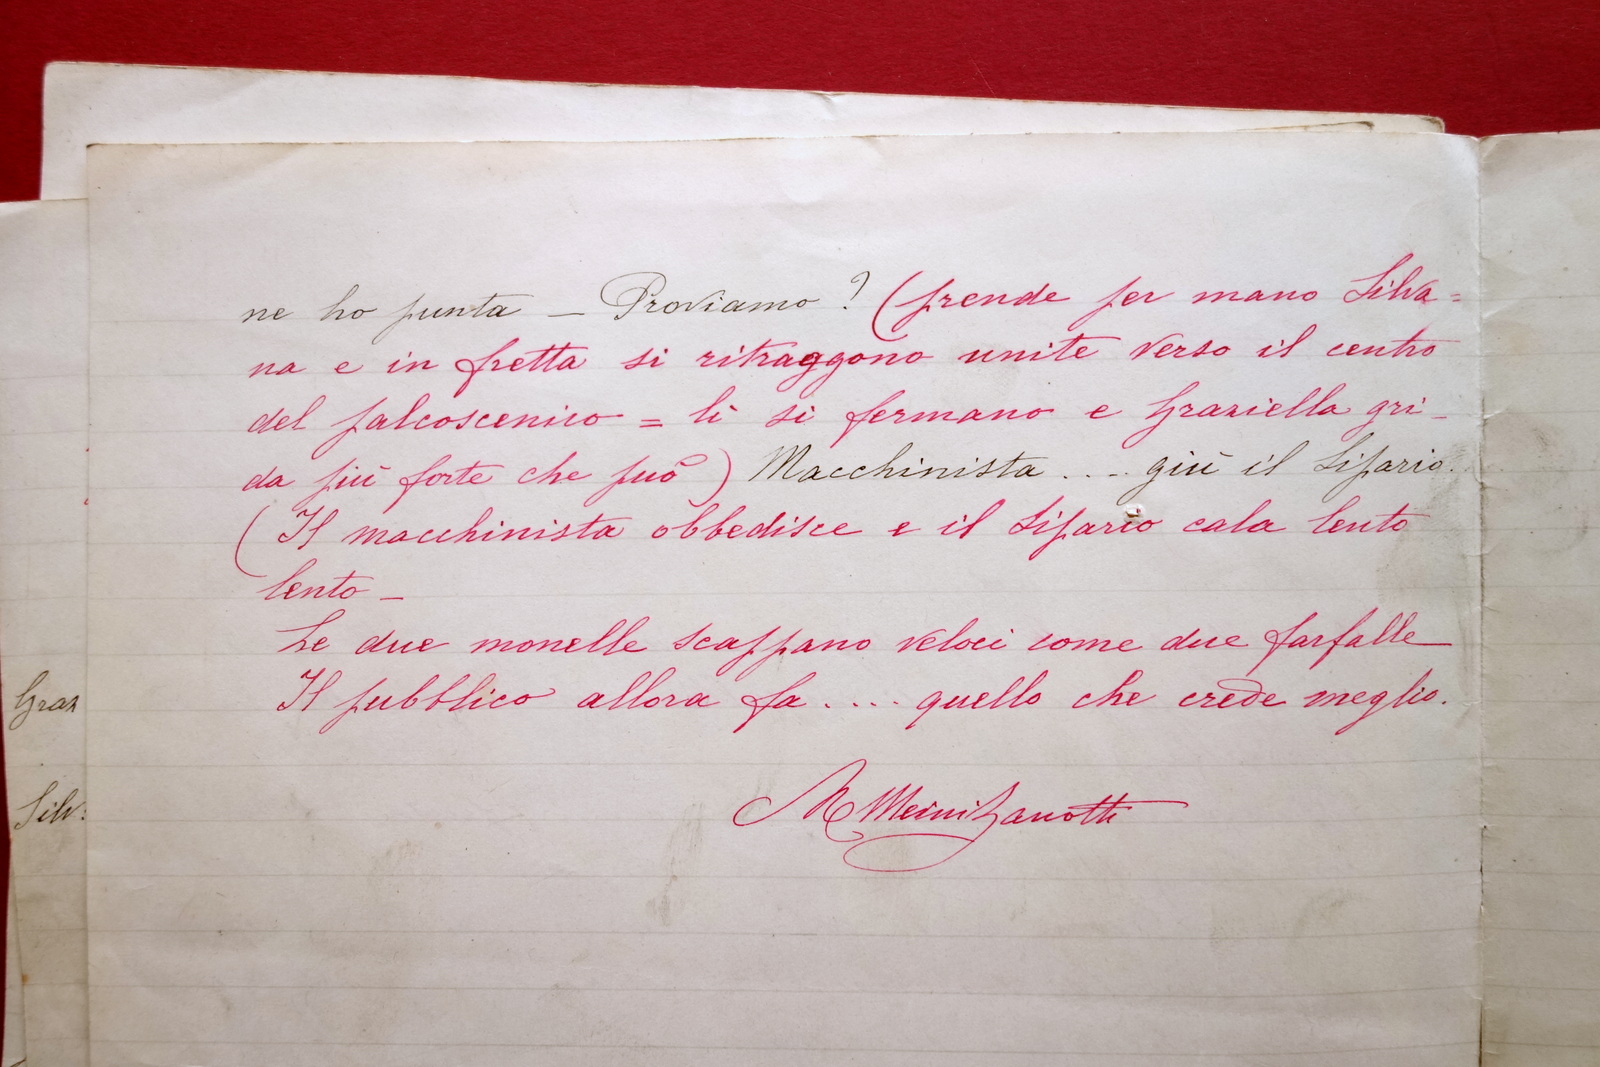 ne ho punta _ Proviamo ? (prende per mano Silva=
na e in fretta si ritraggono unite verso il centro
del palcoscenico = lì si fermano e Graziella gri_
da più forte che può) Macchinista .... giù il Sipario.
(Il macchinista obbedisce e il Sipario cala lento
lento _
Le due monelle scappano veloci come due farfalle
Il pubblico allora fa .... quello che crede meglio.
M Meini Zanotti
Graz
Silv: